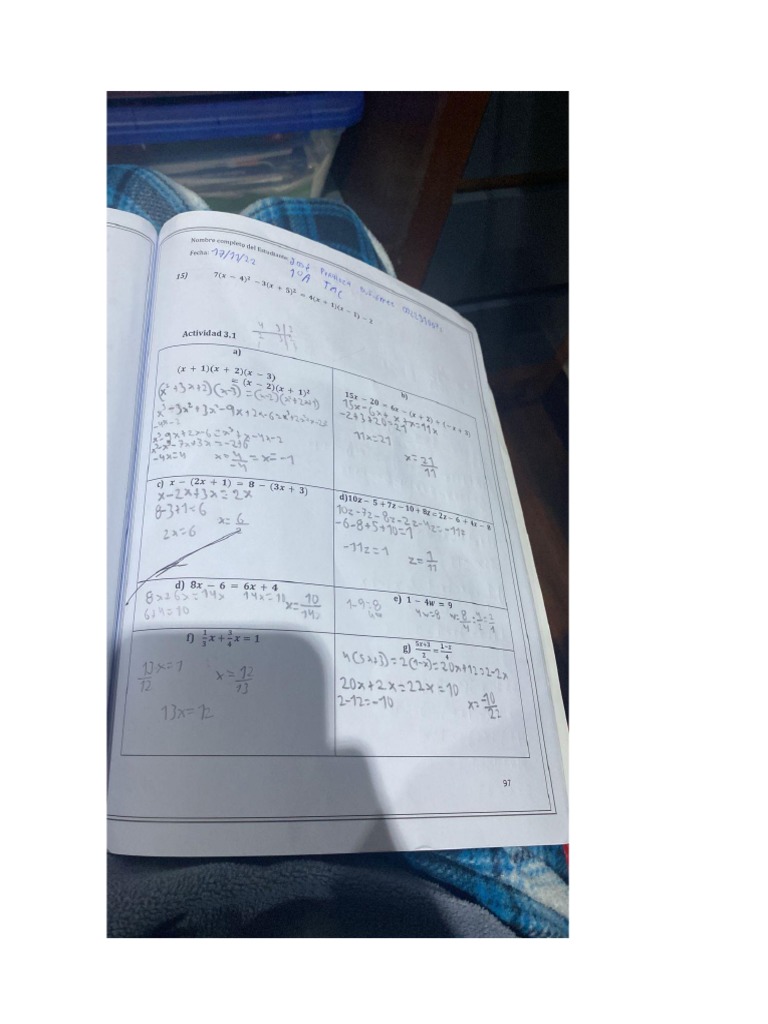 Nombre completo del Estudiante: José
Fecha: 17/11/22 10A TMC
15) 7(x − 4)² − 3(x + 5)² = 4(x + 1)(x − 1) − 2
Actividad 3.1
a)
(x + 1)(x + 2)(x − 3)
= (x − 2)(x + 1)²
(x²+3x+2)(x-3)=(x-2)(x²+2x+1)
-4x=4 x=4/-4 = x=-1
b)
15x − 20 = 6x − (x + 2) + (−x + 3)
15x-6x+x+x=11x
-2+3+20=21
11x=21
x=21/11
c) x − (2x + 1) = 8 − (3x + 3)
x-2x+3x=2x
8-3+1=6
2x=6
d)10z − 5 + 7z − 10 + 8z = 2z − 6 + 4z − 8
-6-8+5+10=1
-11z=1
z=1/11
d) 8x − 6 = 6x + 4
8x+6x=14x 14x=10 x=10/14
6+4=10
e) 1 − 4w = 9
1-9=8
4w=8
f) 1/3 x + 3/4 x = 1
13/12 x=1
x=12/13
13x=12
g) 5x+3/2 = 1−x/4
4(5x+3)=2(1-x)=20x+12=2-2x
20x+2x=22x=10
2-12=-10
x=-10/22
97